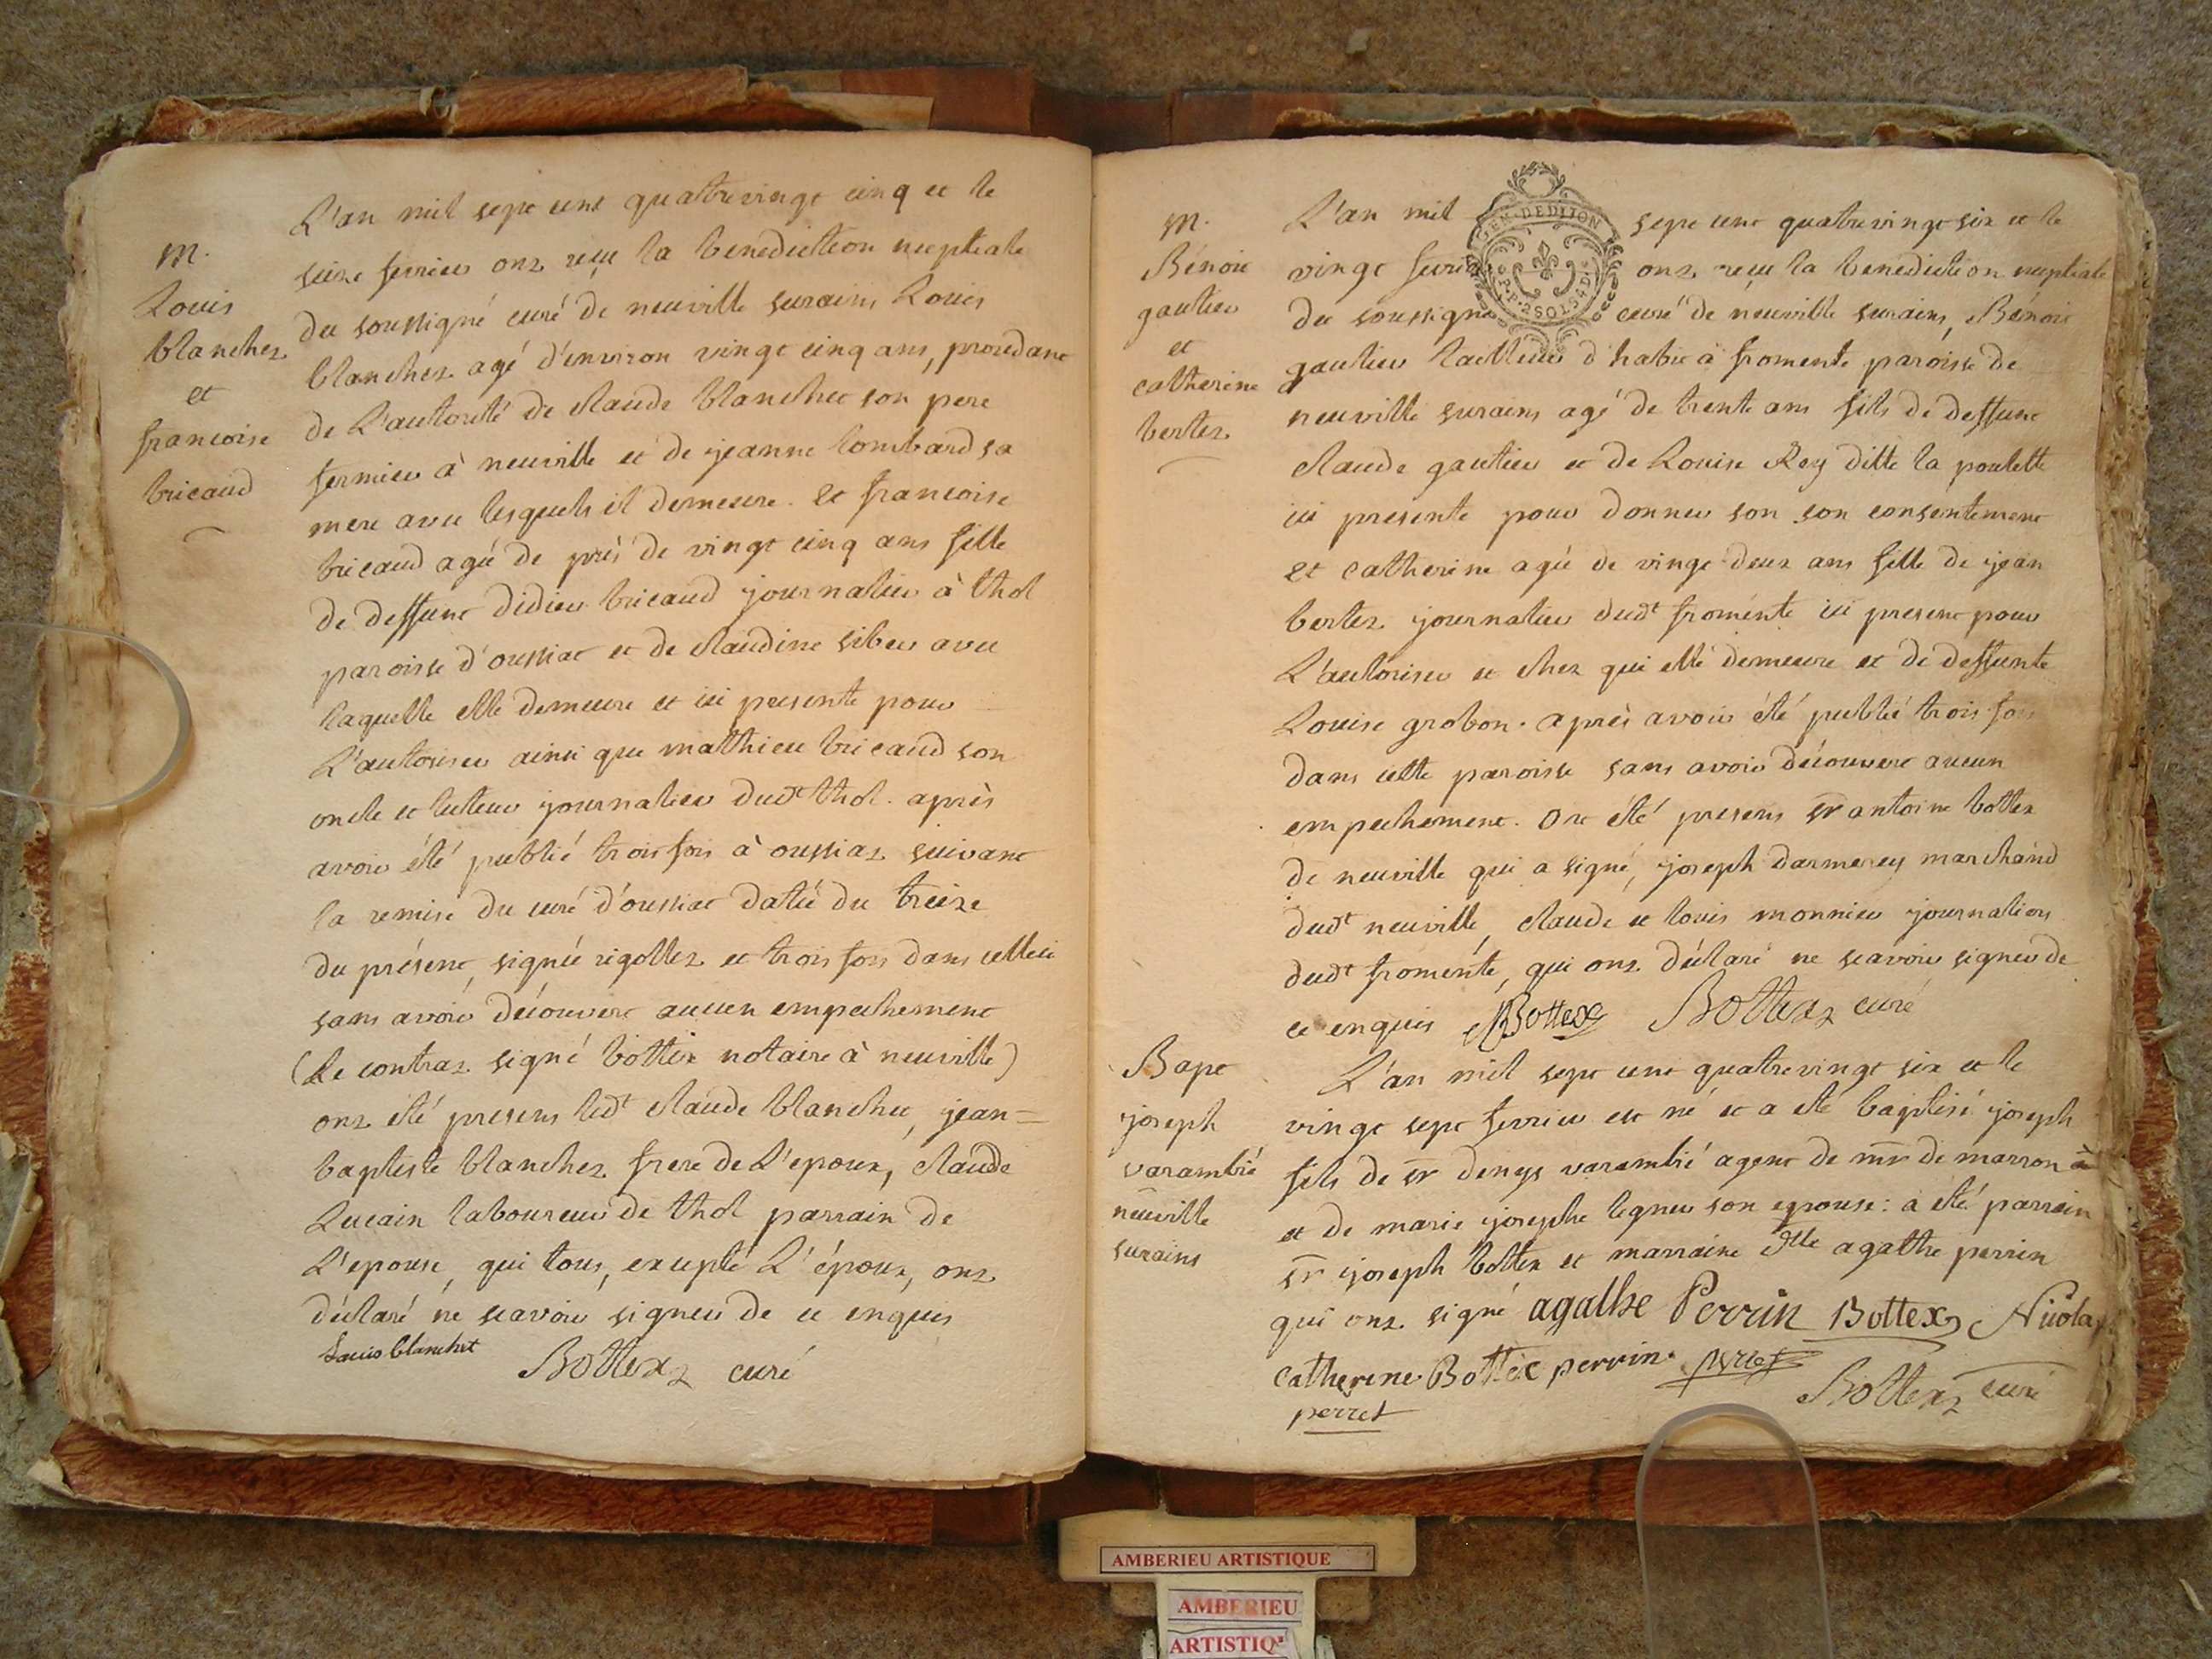 L'an mil sept cent quatrevingt cinq et le
m.
seize fevrier ont reçu la benediction nuptiale
Louis
du soussigné curé de neuville surains Louis
blanchet
blanchet agé d'environ vingt cinq ans, procedant
et
de L'autorité de claude blanchet son pere
francoise
fermier à neuville et de jeanne lombard sa
bricaud
mere avec lesquels il demeure. Et francoise
bricaud agée de près de vingt cinq ans fille
de deffunt didier bricaud journalier à thol
paroisse d'oussiat et de claudine siber avec
laquelle elle demeure et ici presente pour
L'autoriser ainsi que matthieu bricaud son
oncle et tuteur journalier dudt thol. après
avoir été publié trois fois à oussiat suivant
la remise du curé d'oussiat datée du treize
du présent, signée rigollet et trois fois dans celleci
sans avoir découvert aucun empechement
(Le contrat signé bottex notaire à neuville)
ont été presens ledt claude blanchet, jean=
baptiste blanchet frere de L'epoux, claude
Lucain laboureur de thol parrain de
L'epouse, qui tous, excepté L'époux, ont
déclaré ne scavoir signer de ce enquis
Louis blanchet
Bottex curé
m.
Bénoit
gautier
et
catherine
bertet
L'an mil sept cent quatrevingt six et le
vingt fevrier ont reçu la benediction nuptiale
GEN. DE DIJON
P.P. 2 SOLS 4 D.
du soussigné curé de neuville surains, Bénoit
gautier tailleur d'habit à fromente paroisse de
neuville surains agé de trente ans fils de deffunt
claude gautier et de Louise Rey ditte la poulette
ici presente pour donner son son consentement
et catherine agée de vingt deux ans fille de jean
bertet journalier dudt fromente ici present pour
L'autoriser et chez qui elle demeure et de deffunte
Louise grobon. après avoir été publié trois fois
dans cette paroisse sans avoir découvert aucun
empechement. Ont été presens sr antoine bottex
de neuville qui a signé, joseph darmerey marchand
dudt neuville, claude et louis monnier journaliers
dudt fromente, qui ont déclaré ne scavoir signer de
ce enquis Bottex Bottex curé
Bapt
joseph
varambié
neuville
surains
L'an mil sept cent quatrevingt six et le
vingt sept fevrier est né et a été baptisé joseph
fils de sr denys varambié agent de mr de marron à
et de marie josephe legner son epouse: a été parrain
sr joseph bottex et marraine dlle agathe perrin
qui ont signé agathe Perrin Bottex Nicolas
catherine Bottex perrin. perret
perret
Bottex curé
AMBERIEU ARTISTIQUE
AMBERIEU
ARTISTIQ